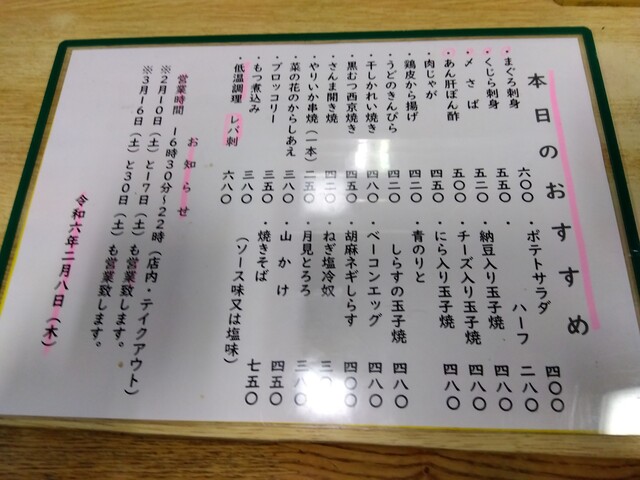 本日のおすすめ
・まぐろ刺身 六〇〇
・くじら刺身 五五〇
・〆さば 五二〇
・あん肝ぽん酢 五〇〇
・肉じゃが 四五〇
・鶏皮から揚げ 四二〇
・うどのきんぴら 四二〇
・干しかれい焼き 四八〇
・黒むつ西京焼き 四五〇
・さんま開き焼 四二〇
・やりいか串焼(一本) 二五〇
・菜の花のからしあえ 三八〇
・ブロッコリー 三五〇
・もつ煮込み 三八〇
低温調理 レバ刺 六八〇
・ポテトサラダ 四〇〇
ハーフ 二八〇
・納豆入り玉子焼 四八〇
・チーズ入り玉子焼 四八〇
・にら入り玉子焼 四八〇
・青のりと
しらすの玉子焼 四八〇
・ベーコンエッグ 四八〇
・胡麻ネギしらす 四〇〇
・ねぎ塩冷奴
・月見とろろ 三八〇
・山かけ 四五〇
・焼きそば 七五〇
(ソース味又は塩味)
お知らせ
営業時間 16時30分~22時(店内・テイクアウト)
※2月10日(土)と17日(土)も営業致します。
※3月16日(土)と30日(土)も営業致します。
令和六年二月八日(木)